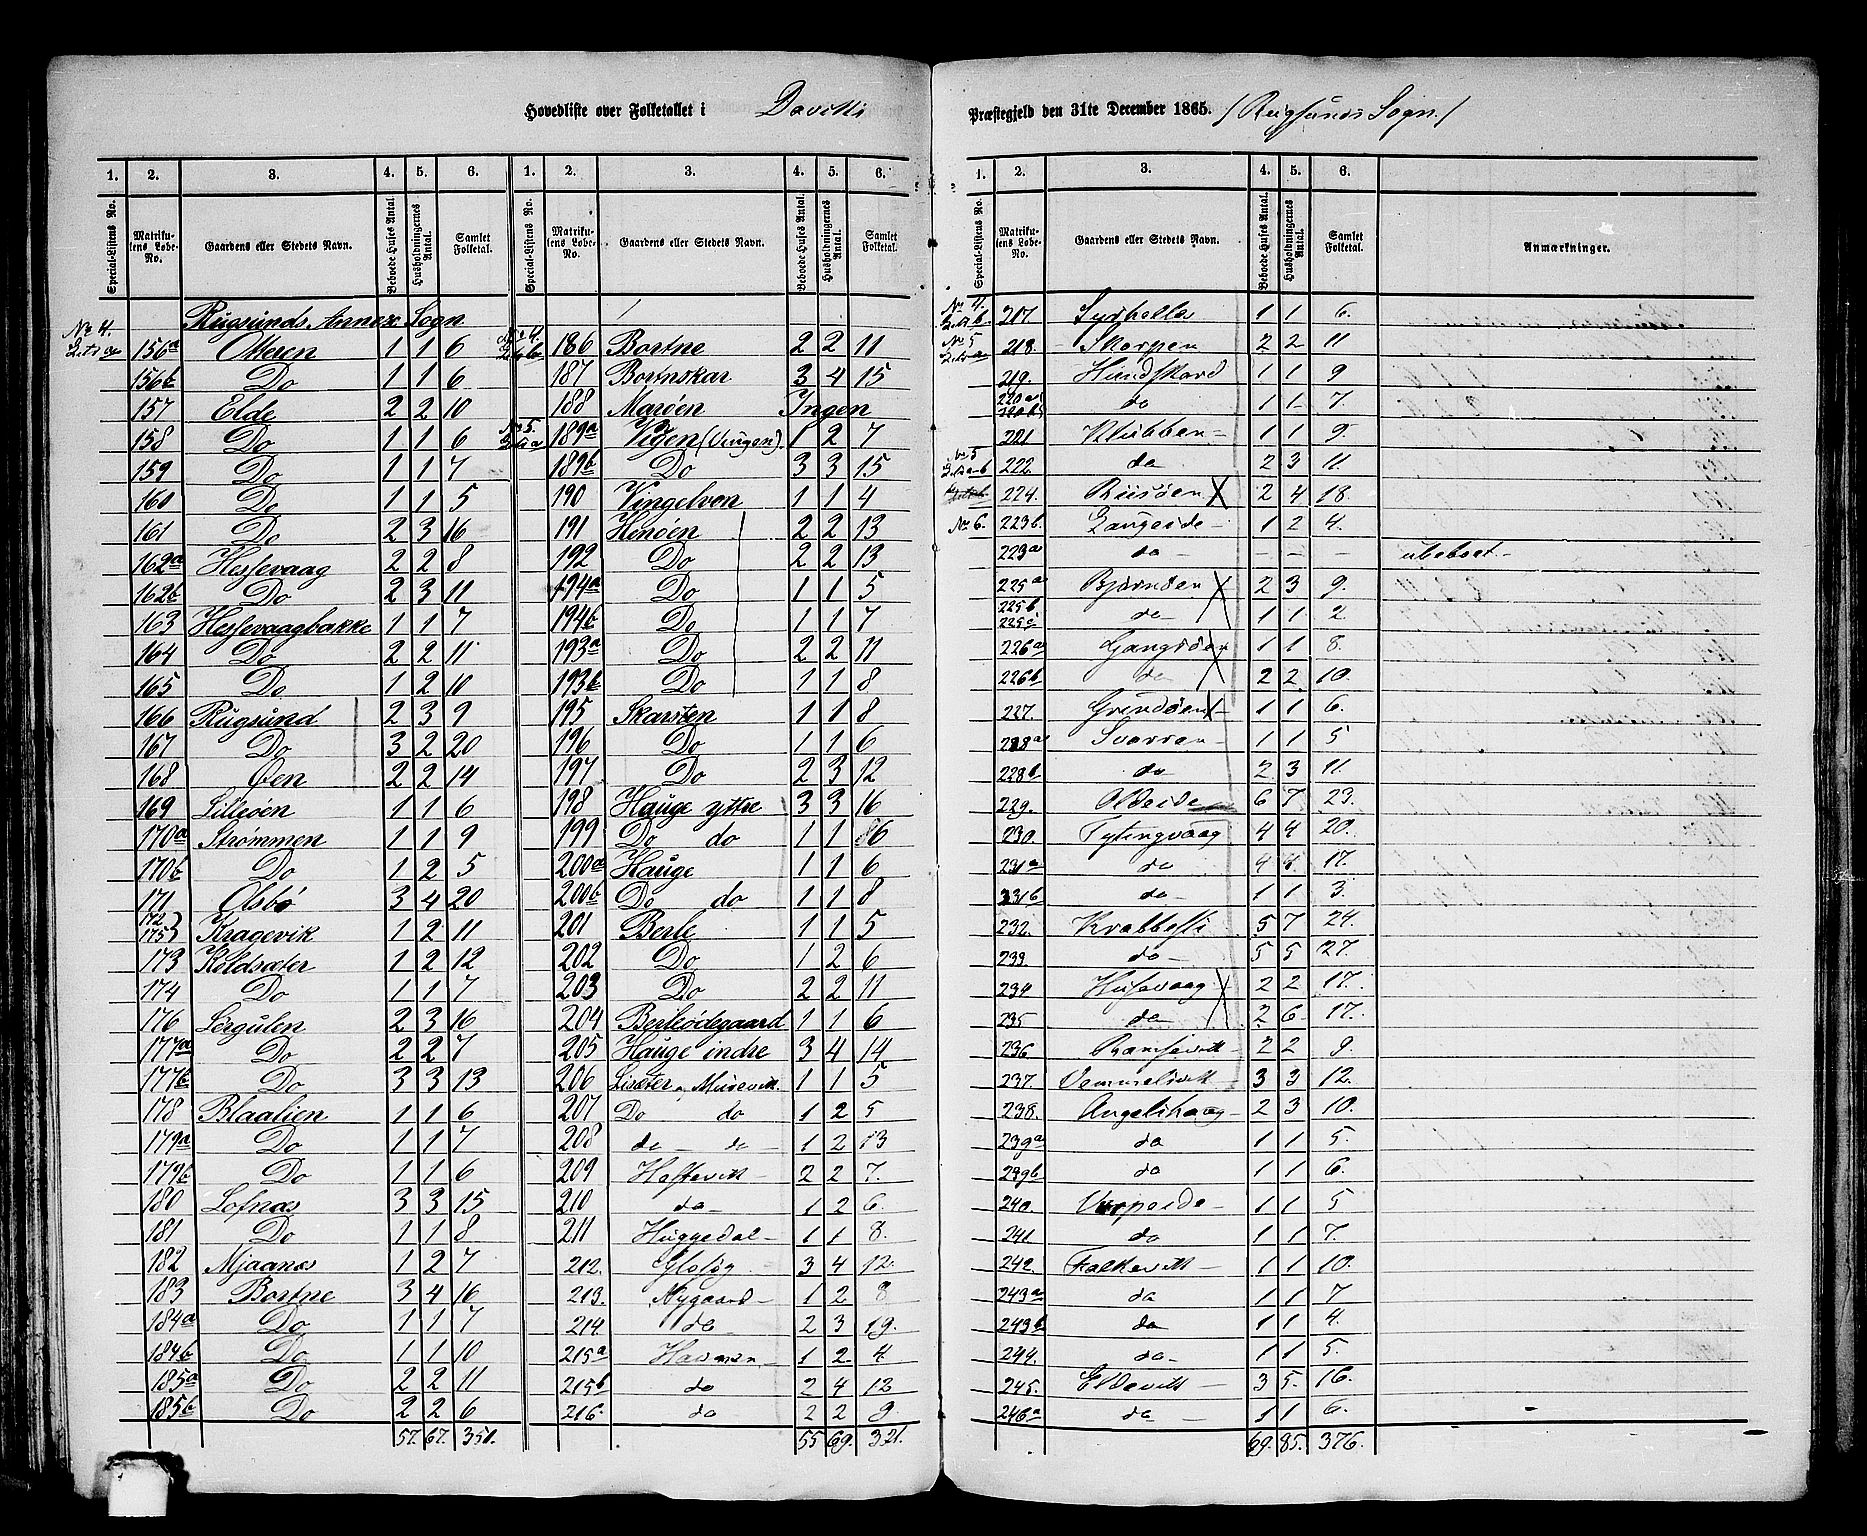 Hovedliste over Folketallet i Davikens Præstegjeld den 31te December 1865. /Rugsunds Sogn./
1. 2. 3. 4. 5. 6. 1. 2. 3. 4. 5. 6.
Special-Listens No. Matrikulens Løbe-No. Gaardens eller Stedets Navn. Beboede Huses Antal. Husholdningernes Antal. Samlet Folketal.
Special-Listens No. Matrikulens Løbe-No. Gaardens eller Stedets Navn. Beboede Huses Antal. Husholdningernes Antal. Samlet Folketal.
Rugsunds Annex Sogn
No 4. Litr a 156a Otteren 1 1 6
156b Do 1 1 6
157 Elde 2 2 10
158 Do 1 1 6
159 Do 1 1 7
160 Do 1 1 5
161 Do 2 3 16
162a Hessevaag 2 2 8
162b Do 2 3 11
163 Hessevaagbakke 1 1 7
164 Do 2 2 11
165 Do 1 2 10
166 Rugsund 2 3 9
167 Do 3 2 20
168 Øen 2 2 14
169 Lilleøen 1 1 6
170a Strømmen 1 1 9
170b Do 1 2 5
171 Olsbø 3 4 20
172 175 } Kragevik 1 2 11
173 Koldsæter 1 2 12
174 Do 1 1 7
176 Sørgulen 2 3 16
177a Do 2 2 7
177b Do 3 3 13
178 Blaalien 1 1 6
179a Do 1 1 7
179b Do 1 1 6
180 Lofnæs 3 3 15
181 Do 1 1 8
182 Mjaanæs 1 2 7
183 Bortne 3 4 16
184a Do 1 1 7
184b Do 1 1 10
185a Do 2 2 11
185b Do 2 2 6
57. 67. 351.
No 4. Litr b 186 Bortne 2 2 11
187 Bortnskar 3 4 15
188 Marøen Ingen
No 5. Litr a 189a Vigen (Vingen) 1 2 7
189b Do 3 3 15
190 Vingelven 1 1 4
191 Henøen 2 2 13
192 Do 2 2 13
194a Do 1 1 5
194b Do 1 1 7
193a Do 2 2 11
193b Do 1 1 8
195 Skarsten 1 1 8
196 Do 1 1 6
197 Do 2 3 12
198 Hauge yttre 3 3 16
199 Do do 1 1 6
200a Hauge 1 1 6
200b Do do 1 1 8
201 Berle 1 1 5
202 Do 1 2 6
203 Do 2 2 11
204 Berleødegaard 1 1 6
205 Hauge indre 3 4 14
206 Lisæter 1 1 5
207 Do do 1 2 5
208 do do 1 2 13
209 Hestevik 2 2 7.
210 do 1 2 6.
211 Huggedal 1 1 8.
212. Glosøg 3 4 12.
213. Nygaard 1 2 8
214. do 2 3 19.
215a 1 2. 4
215b do 2 4 12
216. do 2 2 9
55 69. 321.
1. 2. 3. 4. 5. 6.
Special-Listens No. Matrikulens Løbe-No. Gaardens eller Stedets Navn. Beboede Huses Antal. Husholdningernes Antal. Samlet Folketal. Anmærkninger.
No 4. Litr b. 217. 1 1 6.
No 5 Litr a 218. Skorpen 2 2 11
219. Hundskard 1 1 9
220a 220b do 1 1 7.
221 Klubben 1 1 9.
No 5 Litr b 222. do 2 3 11.
224. Riisøen X 2 4 18.
No 6. 223b. Langeide 1 2 4.
223a do - - - ubeboet
225a Bjørnøen 2 3 9.
225b 225c do 1 1 2.
226a Gangsøen 1 1 8.
226b do 2 2 10.
227. Grindøen 1 1 6.
228a Svarren 1 1 5
228b do 2 3 11.
229. Oldeide 6 7 23.
230. Tytingvaag 4 4 20.
231a do 4 4 17.
231b do 1 1 3.
232. Krabbesti 5 7 24.
233. do 5 5 27.
234 Husevaag 2 2 17.
235 do 2 6 17.
236 Ramsevik 2 2 9.
237. Vemmelsvik 3 3 12.
238. Angelshaug 2 3 10.
239a do 1 1 5.
239b do 1 1 6.
240. 1 1 5
241 do 1 1 7.
242. Falkevik 1 1 10.
243a da 1 1 7
243b do 1 1 4.
244. do 1 1 5.
245. Eldevik 3 5. 16.
246a do 1 1 6.
69. 85. 376.